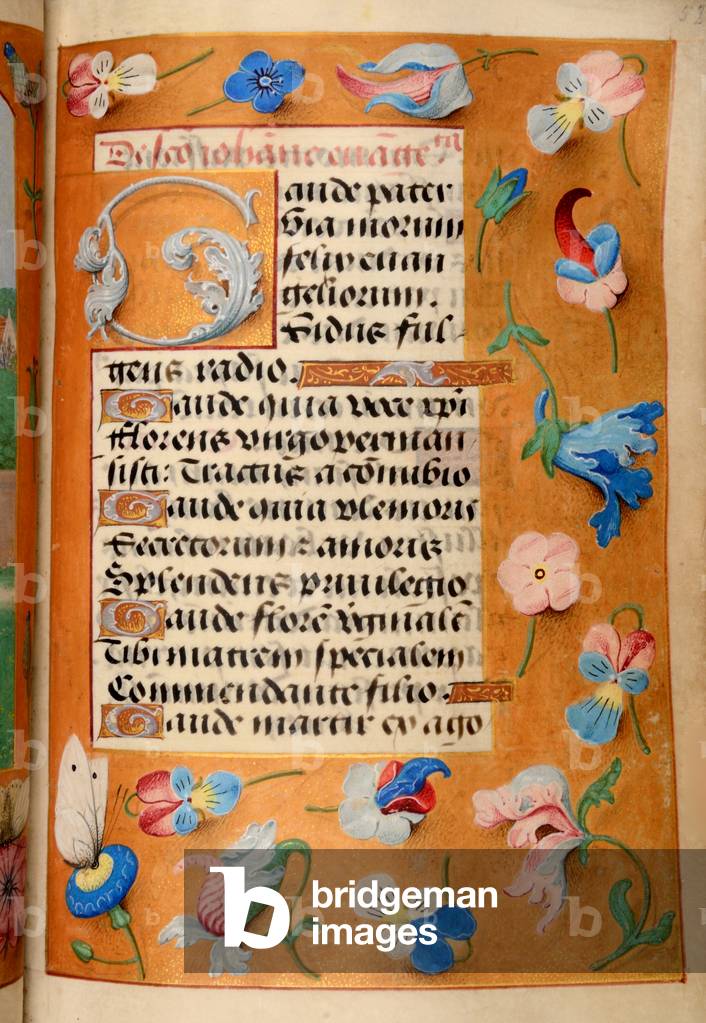 52
De sco iohāne euāge
Gaude pater
via morum
felix euan
geliorum.
Sidus ful
gens radio.
Gaude quia voce xpi
Florens virgo perman
sisti: Tractus a cōnubio
Gaude quia
Secretorum z amoris
Splendens priuilegio
Gaude florē v̄ginalē
Tibi matrem specialem
Commendante filio.
Gaude martir ex ago
b bridgeman images